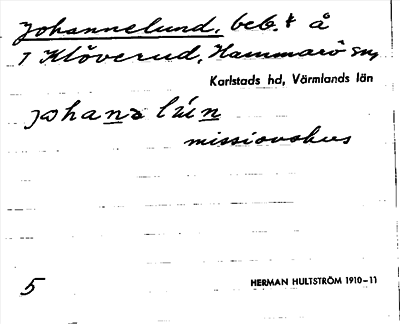 Johannelund, beb. å
1 Klöverud, Hammarö sn,
Karlstads hd, Värmlands län
missionshus
5
HERMAN HULTSTRÖM 1910–11